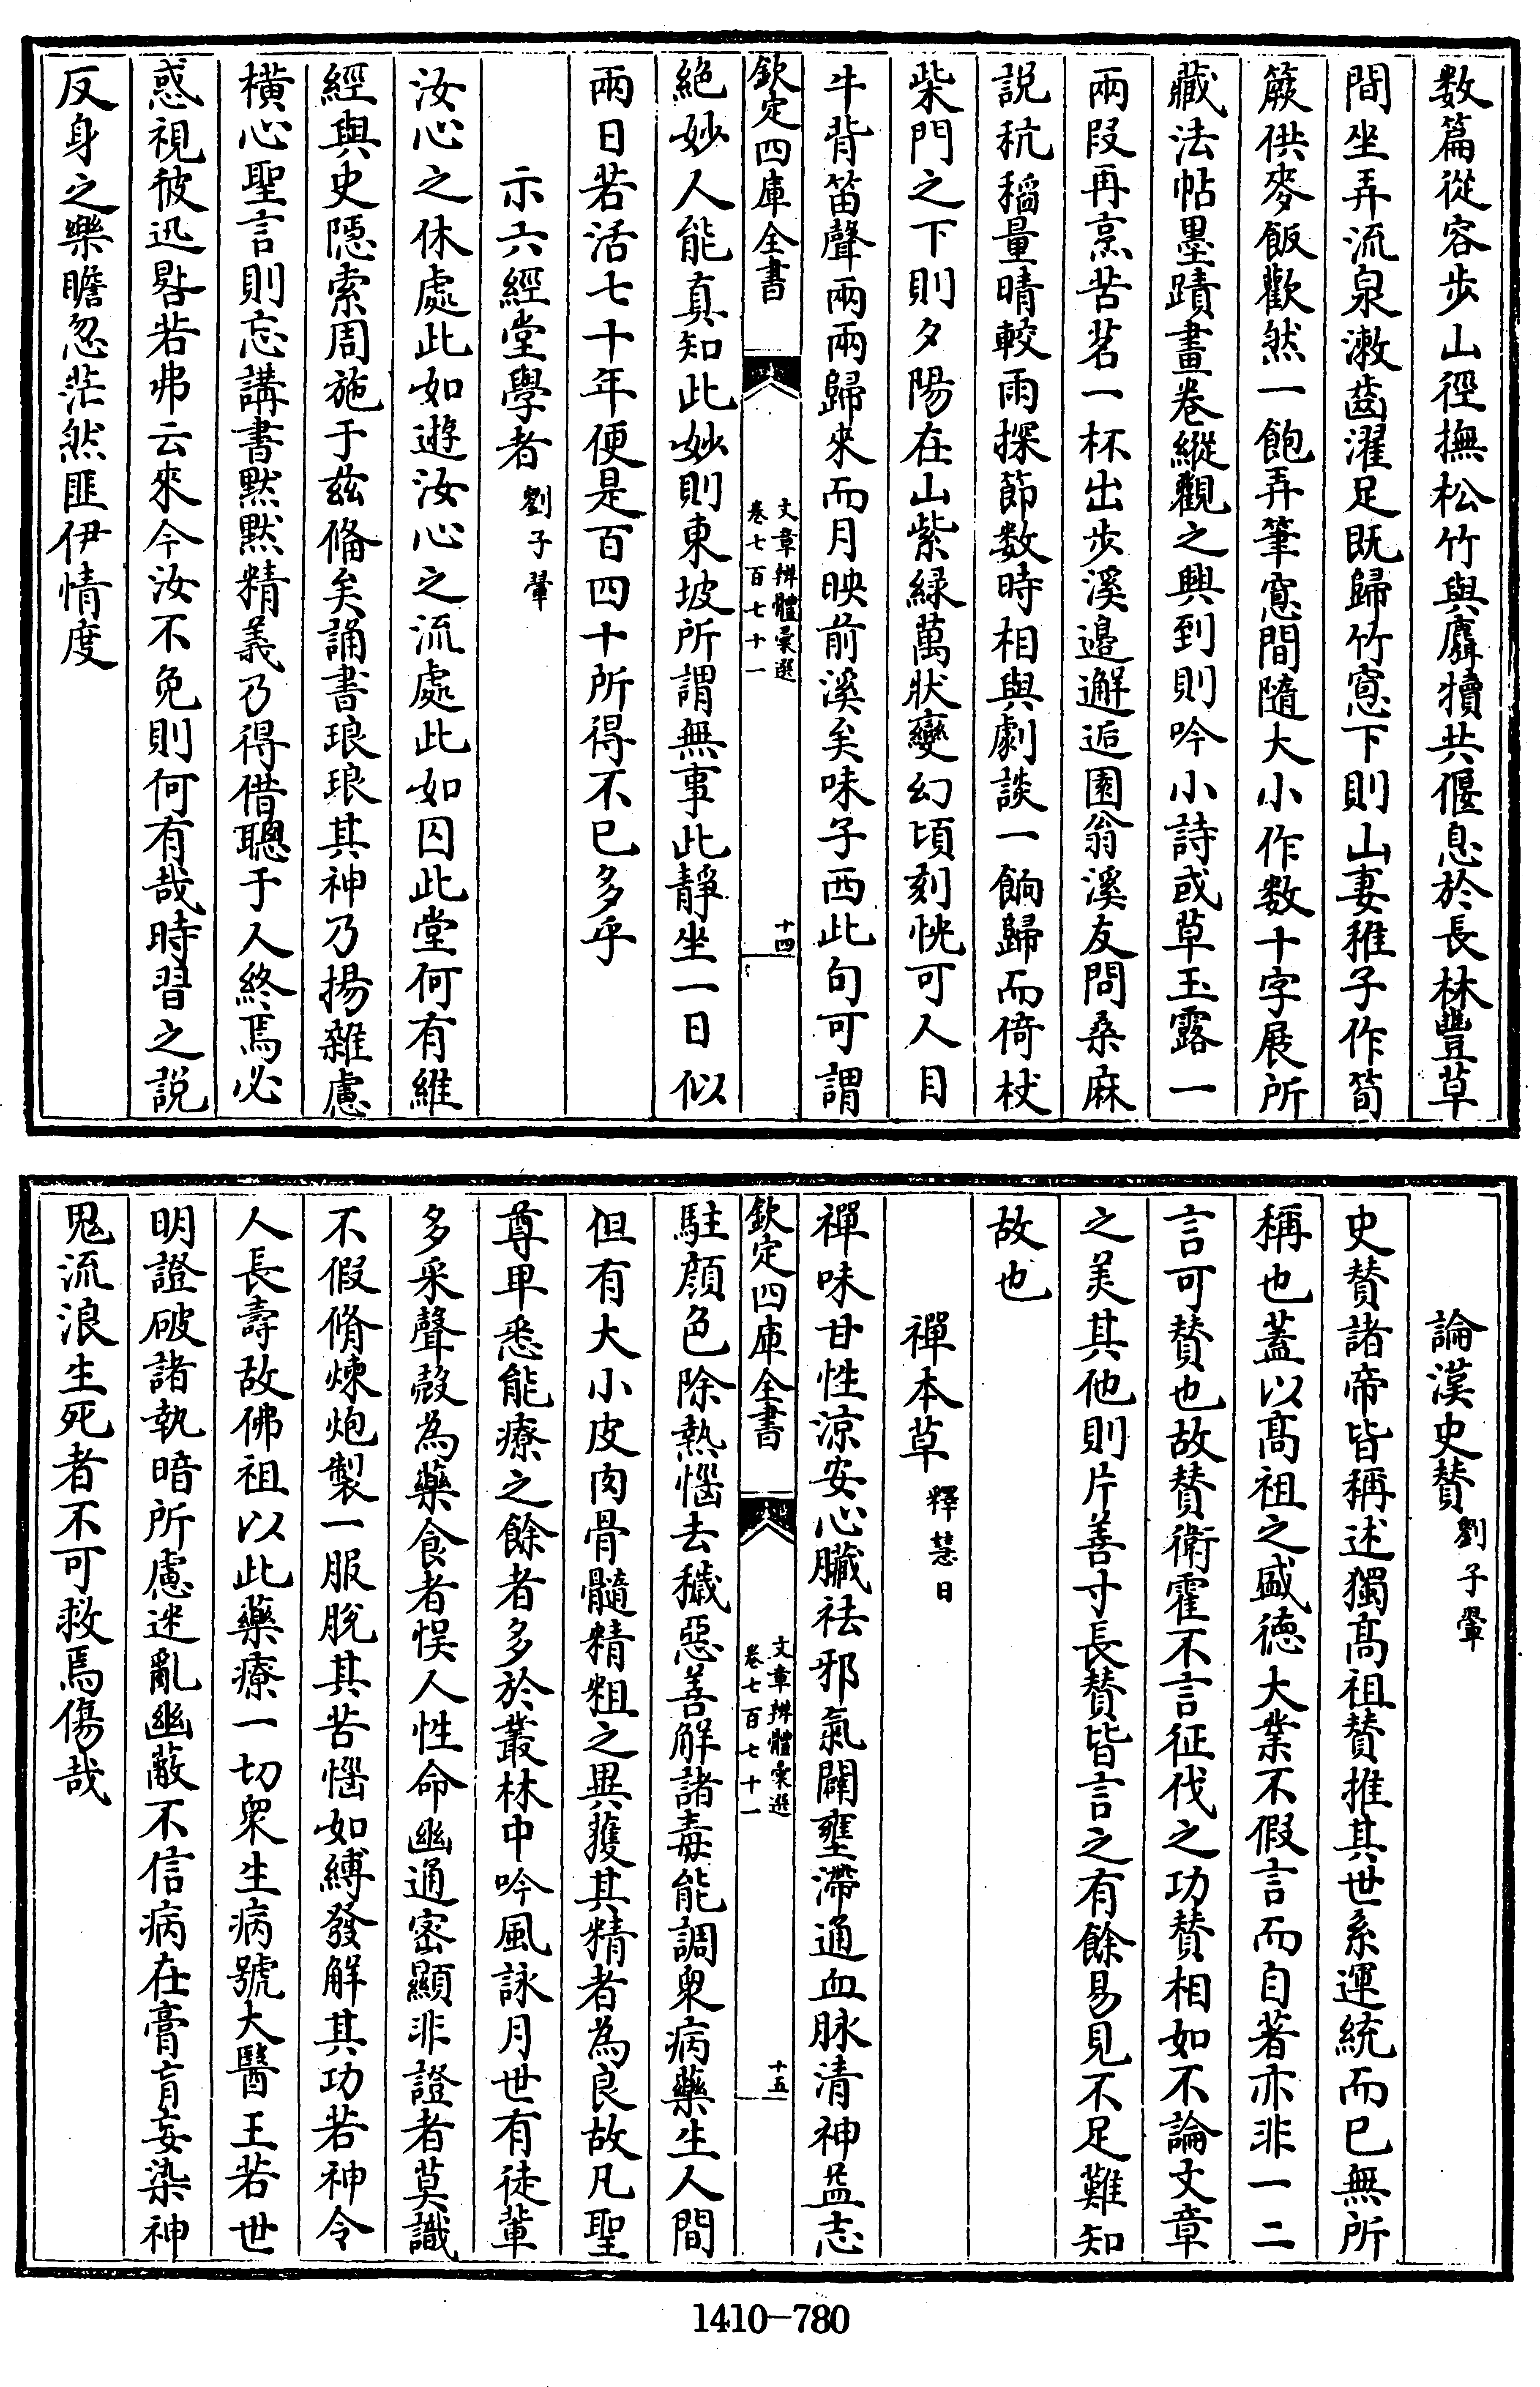 数篇從容步山徑撫松竹與麛犢共偃息於長林豐草
間坐弄流泉漱齒濯足既歸竹窻下則山妻稚子作筍
蕨供麥飯歡然一飽弄筆窻間隨大小作数十字展所
藏法帖墨蹟畫卷縱觀之興到則吟小詩或草玉露一
兩段再烹苦茗一杯出步溪邉邂逅園翁溪友問桑麻
說秔稻量晴較雨探節数時相與劇談一餉歸而倚杖
柴門之下則夕陽在山紫緑萬狀變幻頃刻恍可人目
牛背笛聲兩兩歸來而月映前溪矣味子西此句可謂
欽定四庫全書
文章辨體彚選
卷七百七十一
十四
絕妙人能真知此妙則東坡所謂無事此靜坐一日似
兩日若活七十年便是百四十所得不已多乎
示六經堂學者 劉子翬
汝心之休處此如遊汝心之流處此如囚此堂何有維
經與史隠索周施于兹偹矣誦書琅琅其神乃揚雜慮
橫心聖言則忘講書黙黙精義乃得借聰于人終焉必
惑視彼迅晷若弗云來今汝不免則何有哉時習之說
反身之樂瞻忽茫然匪伊情度
論漢史賛 劉子翬
史賛諸帝皆稱述獨髙祖賛推其世系運統而已無所
稱也蓋以髙祖之盛德大業不假言而自著亦非一二
言可賛也故賛衛霍不言征伐之功賛相如不論文章
之美其他則片善寸長賛皆言之有餘易見不足難知
故也
禪本草 釋慧日
禪味甘性涼安心臟祛邪氣闢壅滯通血脉清神益志
欽定四庫全書
文章辨體彚選
卷七百七十一
十五
駐顔色除熱惱去穢惡善解諸毒能調衆病藥生人間
但有大小皮肉骨髓精粗之異獲其精者為良故凡聖
尊卑悉能療之餘者多於叢林中吟風詠月世有徒輩
多采聲殼為藥食者悞人性命幽通密顯非證者莫識
不假脩煉炮製一服脫其苦惱如縛發解其功若神令
人長壽故佛祖以此藥療一切衆生病號大醫王若世
明證破諸執暗所慮迷亂幽蔽不信病在膏肓妄染神
鬼流浪生死者不可救焉傷哉
1410-780